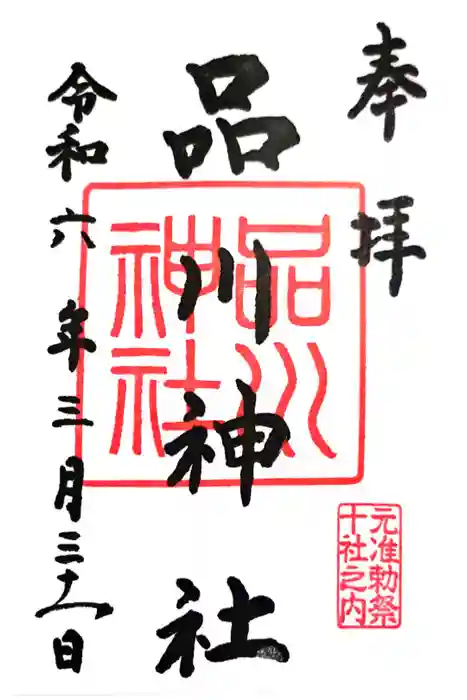 奉拝
品川神社
令和六年三月三十一日
品川
神社
元准勅祭
十社之内